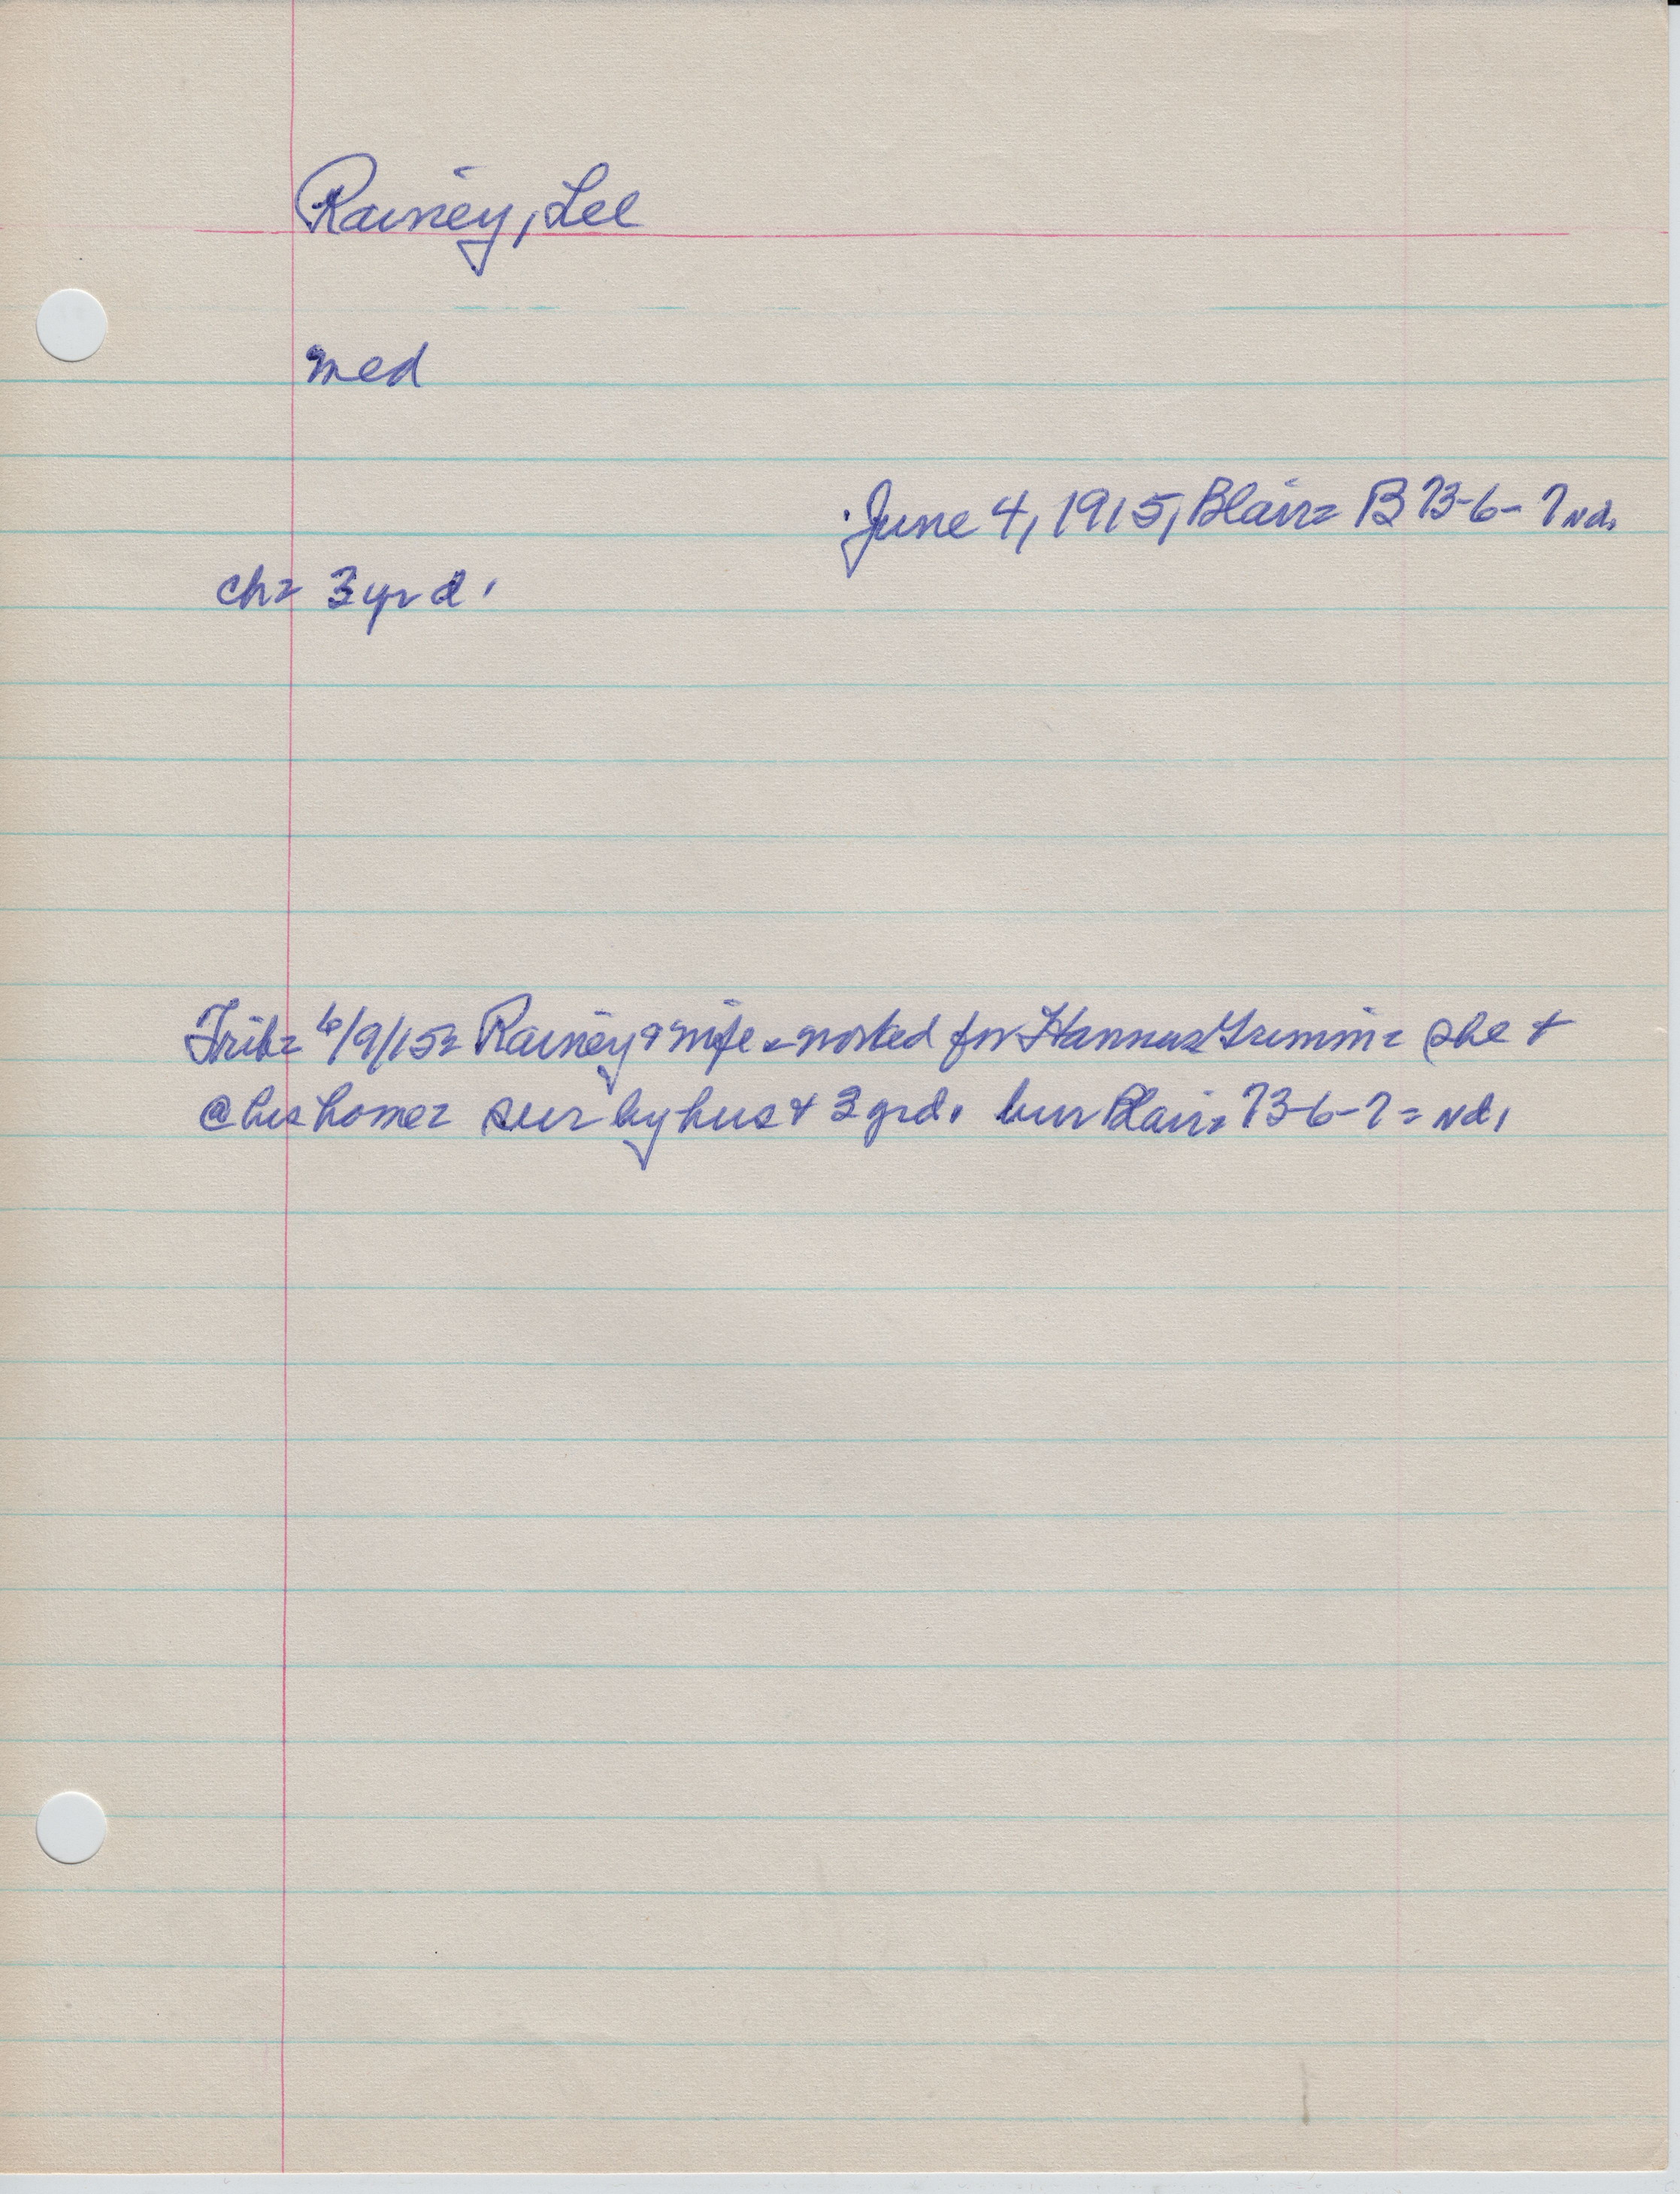 Rainey, Lee
med
June 4, 1915, Blair= B 73-6-7 nd.
ch= 3 yr d.
Trib= 6/9/15= Rainey & wife - worked for Hannus Grimm= she +
@ his home= sur by hus + 3 yrd. bur Blair= 73-6-7= nd.